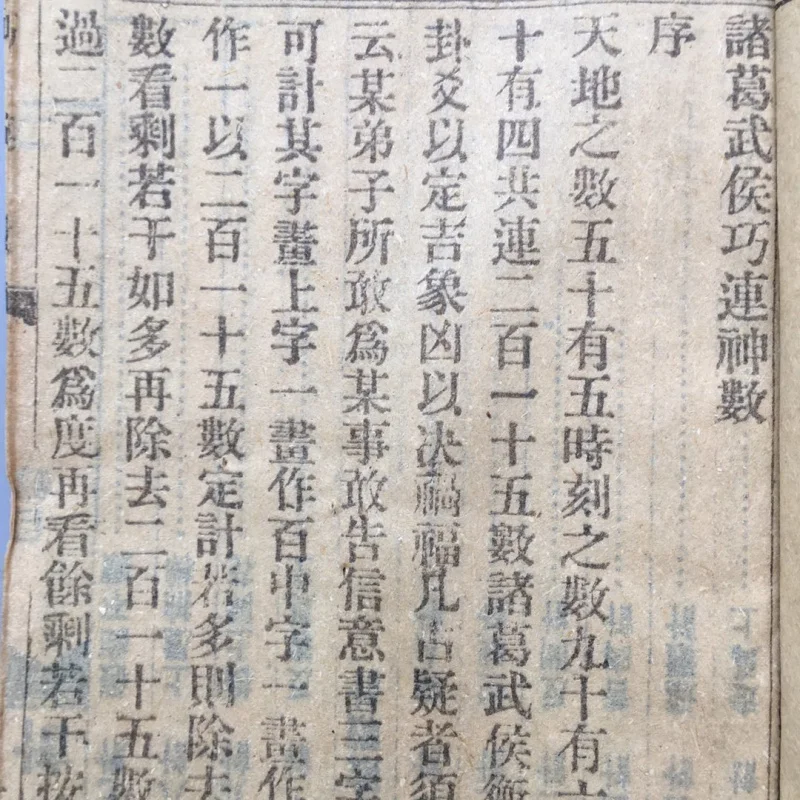 諸葛武侯巧連神數
序
天地之數五十有五時刻之數九十有六
十有四共連二百一十五數諸葛武侯衡
卦爻以定吉象凶以决禍福凡占疑者須
云某弟子所敢爲某事敢告信意書三字
可計其字畫上字一畫作百中字一畫作
作一以二百一十五數定計若多則除去
數看剩若干如多再除去二百一十五數
過二百一十五數爲度再看餘剩若干按